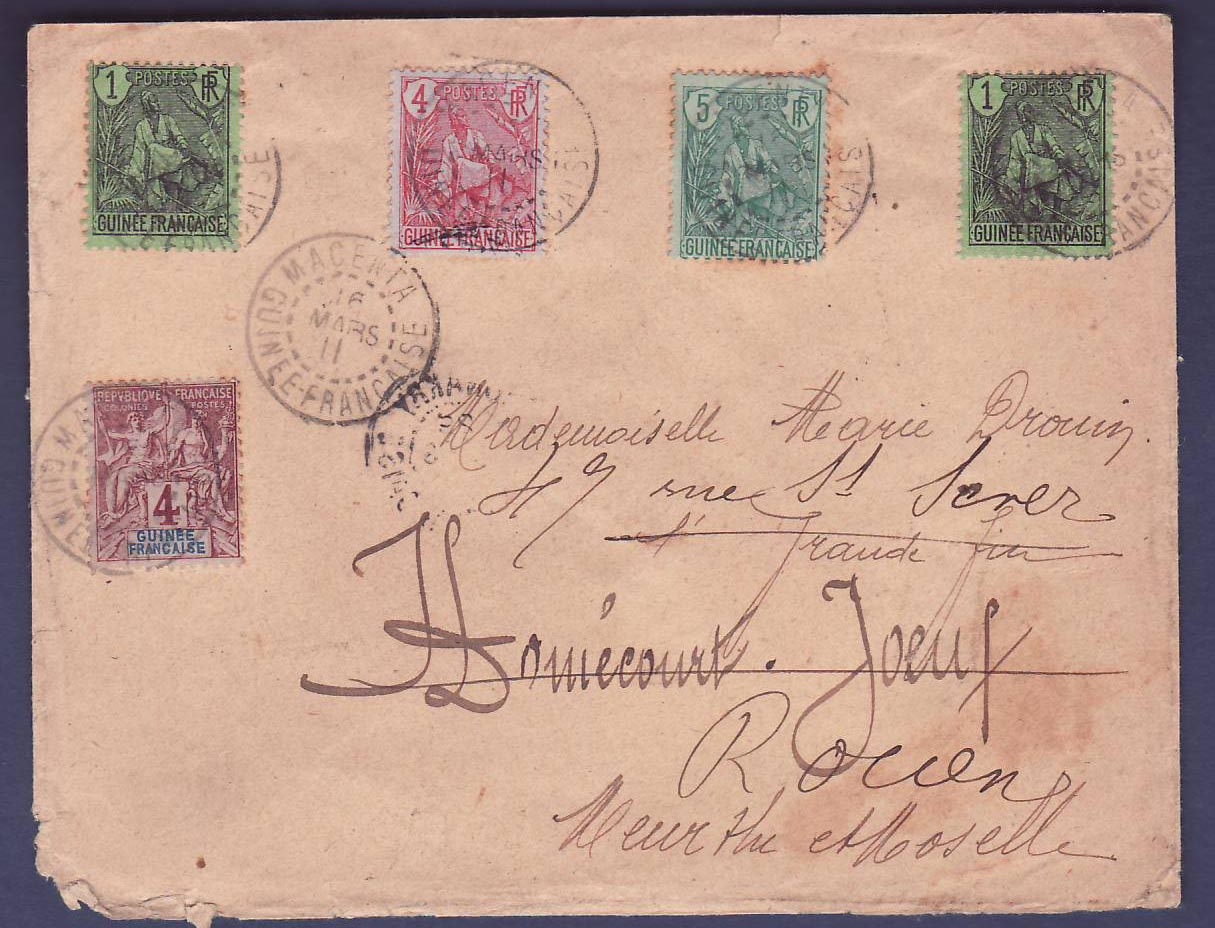 1 POSTES RF
GUINÉE FRANÇAISE
4 POSTES RF
GUINÉE FRANÇAISE
5 POSTES RF
GUINÉE FRANÇAISE
1 POSTES RF
GUINÉE FRANÇAISE
MACENTA
16
MARS
11
GUINÉE-FRANÇAISE
REPUBLIQUE FRANÇAISE
COLONIES POSTES
4
GUINÉE
FRANÇAISE
Mademoiselle Marie Drouin
47 rue St Sever
Grande
Homécourt. Joeuf
Rouen
Meurthe et Moselle